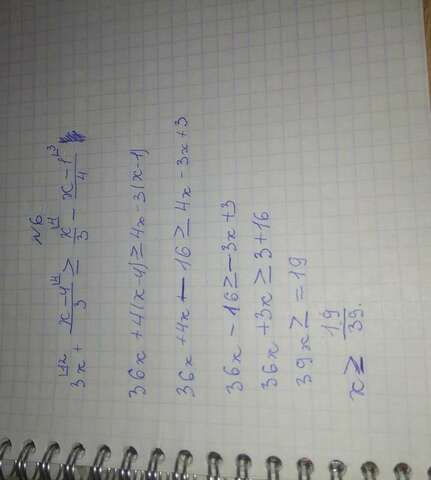 №6
3x^{⌊12} + \frac{x-4^{⌊4}}{3} ≥ \frac{x^{⌊4}}{3} - \frac{x-1^{⌊3}}{4}
36x + 4(x-4) ≥ 4x - 3(x-1)
36x + 4x - 16 ≥ 4x - 3x + 3
36x - 16 ≥ -3x + 3
36x + 3x ≥ 3 + 16
39x ≥ = 19
x ≥ \frac{19}{39}.